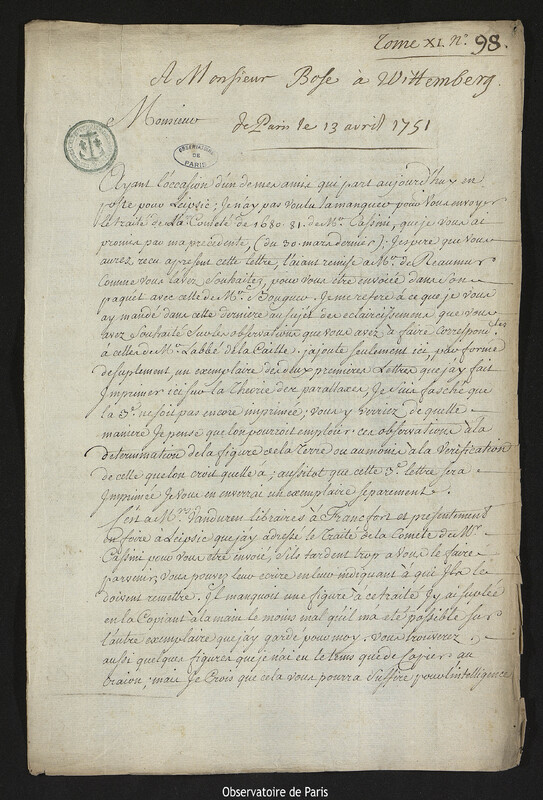 Tome XI. N.° 98.
A Monsieur Bose à Wittemberg.
Monsieur
de Paris le 13 avril 1751
OBSERVATOIRE
DE
PARIS
Ayant l'occasion d'un de mes amis qui part aujourd'huy en
poste pour Leipsic; Je n'ay pas voulu la manquer pour vous envoyer
le traité de la Comete de 1680. 81. de Mr. Cassini, que je vous ai
promis par ma précédente, (du 30. mars dernier). J'espere que vous
aurez recu apresent cette lettre, l'aiant remise a Mr. de Reaumur
Comme vous l'avez souhaité, pour vous etre envoiée dans son
paquet avec celle de Mr. Bouguer. Je me refere à ce que je vous
ay mandé dans cette derniere au sujet des eclaircissemens que vous
avez souhaité sur les observations que vous avez à faire correspondtes
a celles de Mr. l'abbé de la Caille. jajoute seulement ici, par forme
de suplement un exemplaire des deux premieres Lettres que j'ay fait
Imprimer ici sur la Theorie des parallaxes. Je suis fasché que
la 3e. ne soit pas encore imprimée; vous y verriez de quelle
maniere Je pense que l'on pourroit emploier ces observations à la
determination de la figure de la Terre ou au moins à la verification
de celle que l'on croit qu'elle a; aussitot que cette 3e. lettre sera
Imprimée Je vous en enverrai un exemplaire separement.
C'est a Mrs. Vanduren libraires à Francfort et presentement
en foire a Leipsic que jay adressé le traité de la Comete de Mr.
Cassini pour vous etre envoié, s'ils tardent trop a vous le faire
parvenir, vous pouvez leur ecrire en leur indiquant à qui Ils le
doivent remettre. Il manquoit une figure à ce traité J'y ai suplée
en la Copiant à la main le moins mal qu'il m'a été possible sur
l'autre exemplaire que jay gardé pour moy. vous trouverez
aussi quelques figures que je n'ai eu le tems que de copier au
craion; mais je crois que cela vous pourra suffire pour l'intelligence
Observatoire de Paris